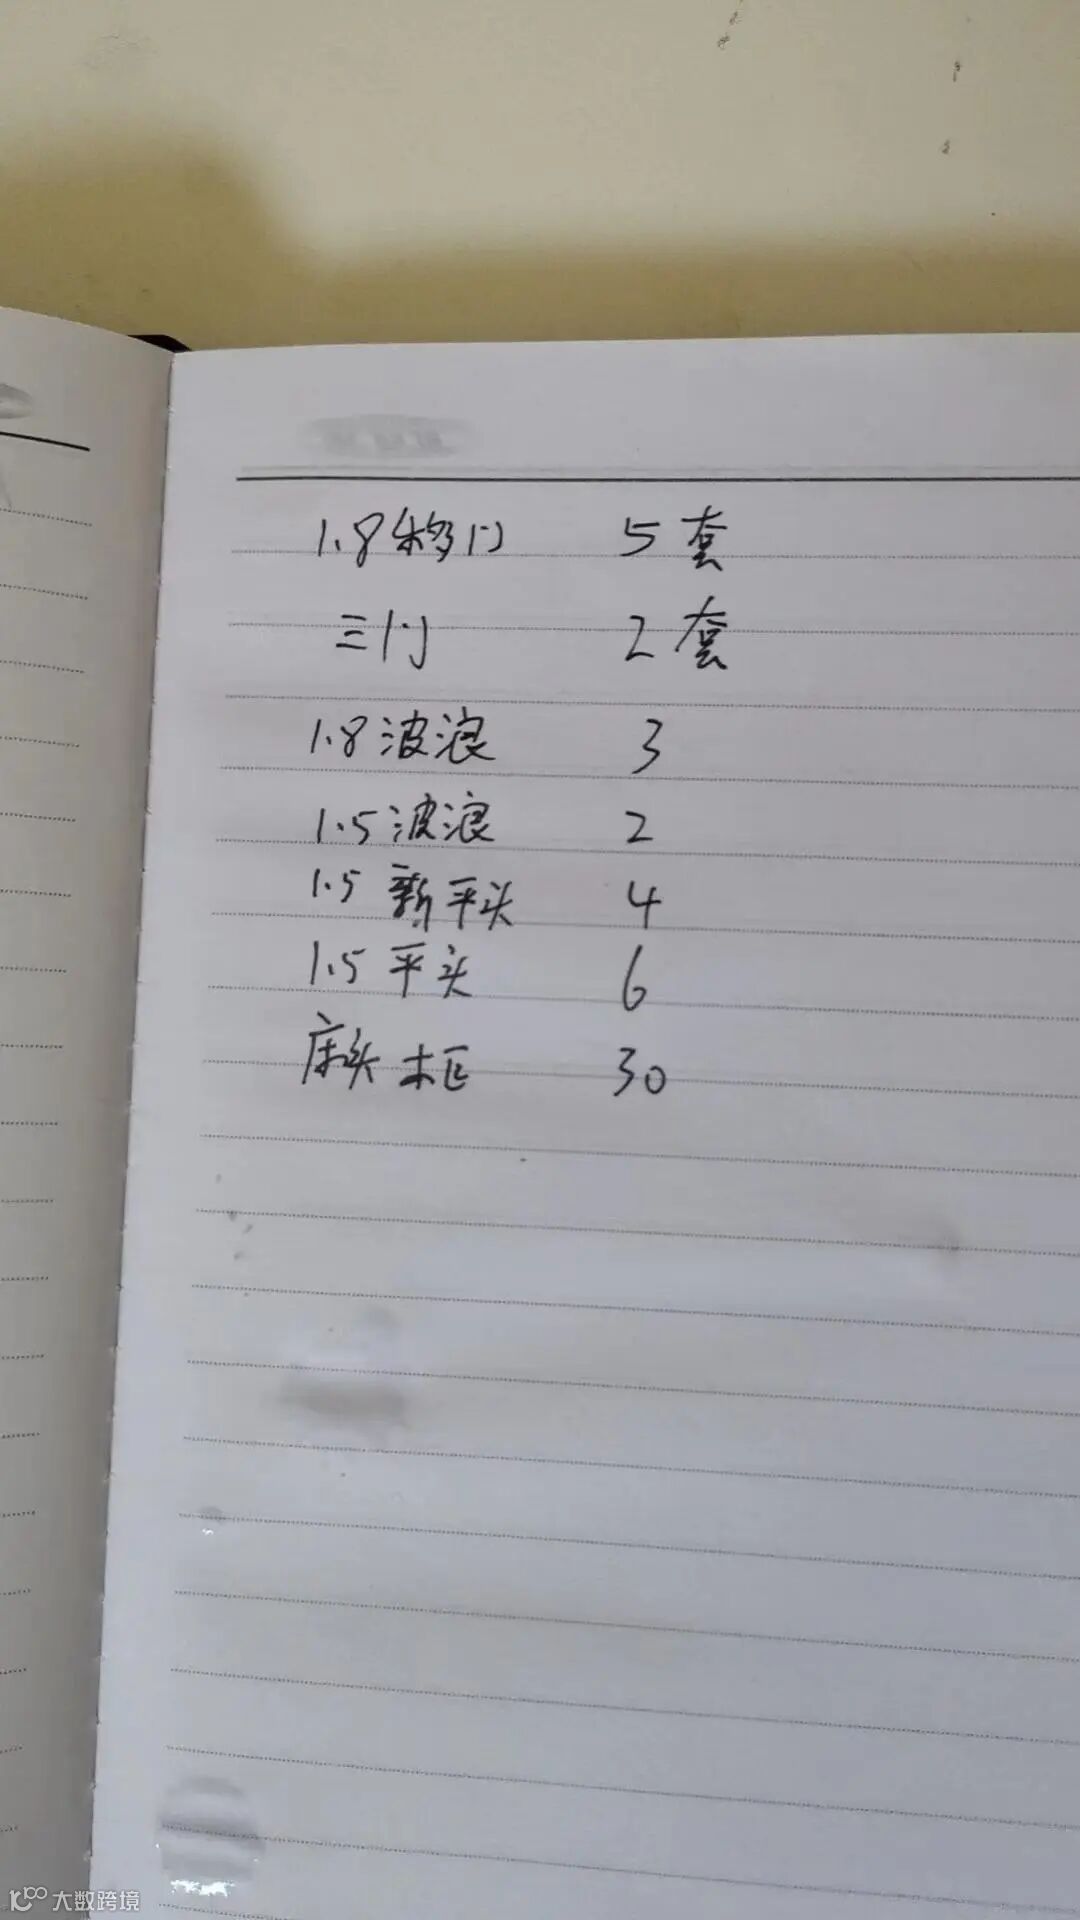 1.8移门 5套
三门 2套
1.8波浪 3
1.5波浪 2
1.5新平头 4
1.5平头 6
床头柜 30
大数跨境